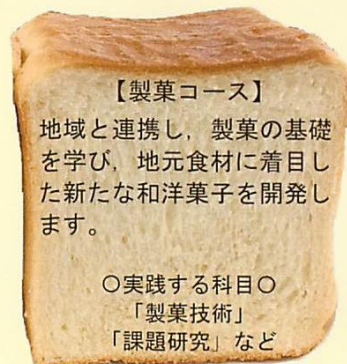 【製菓コース】
地域と連携し，製菓の基礎
を学び，地元食材に着目し
た新たな和洋菓子を開発し
ます。
○実践する科目○
「製菓技術」
「課題研究」など